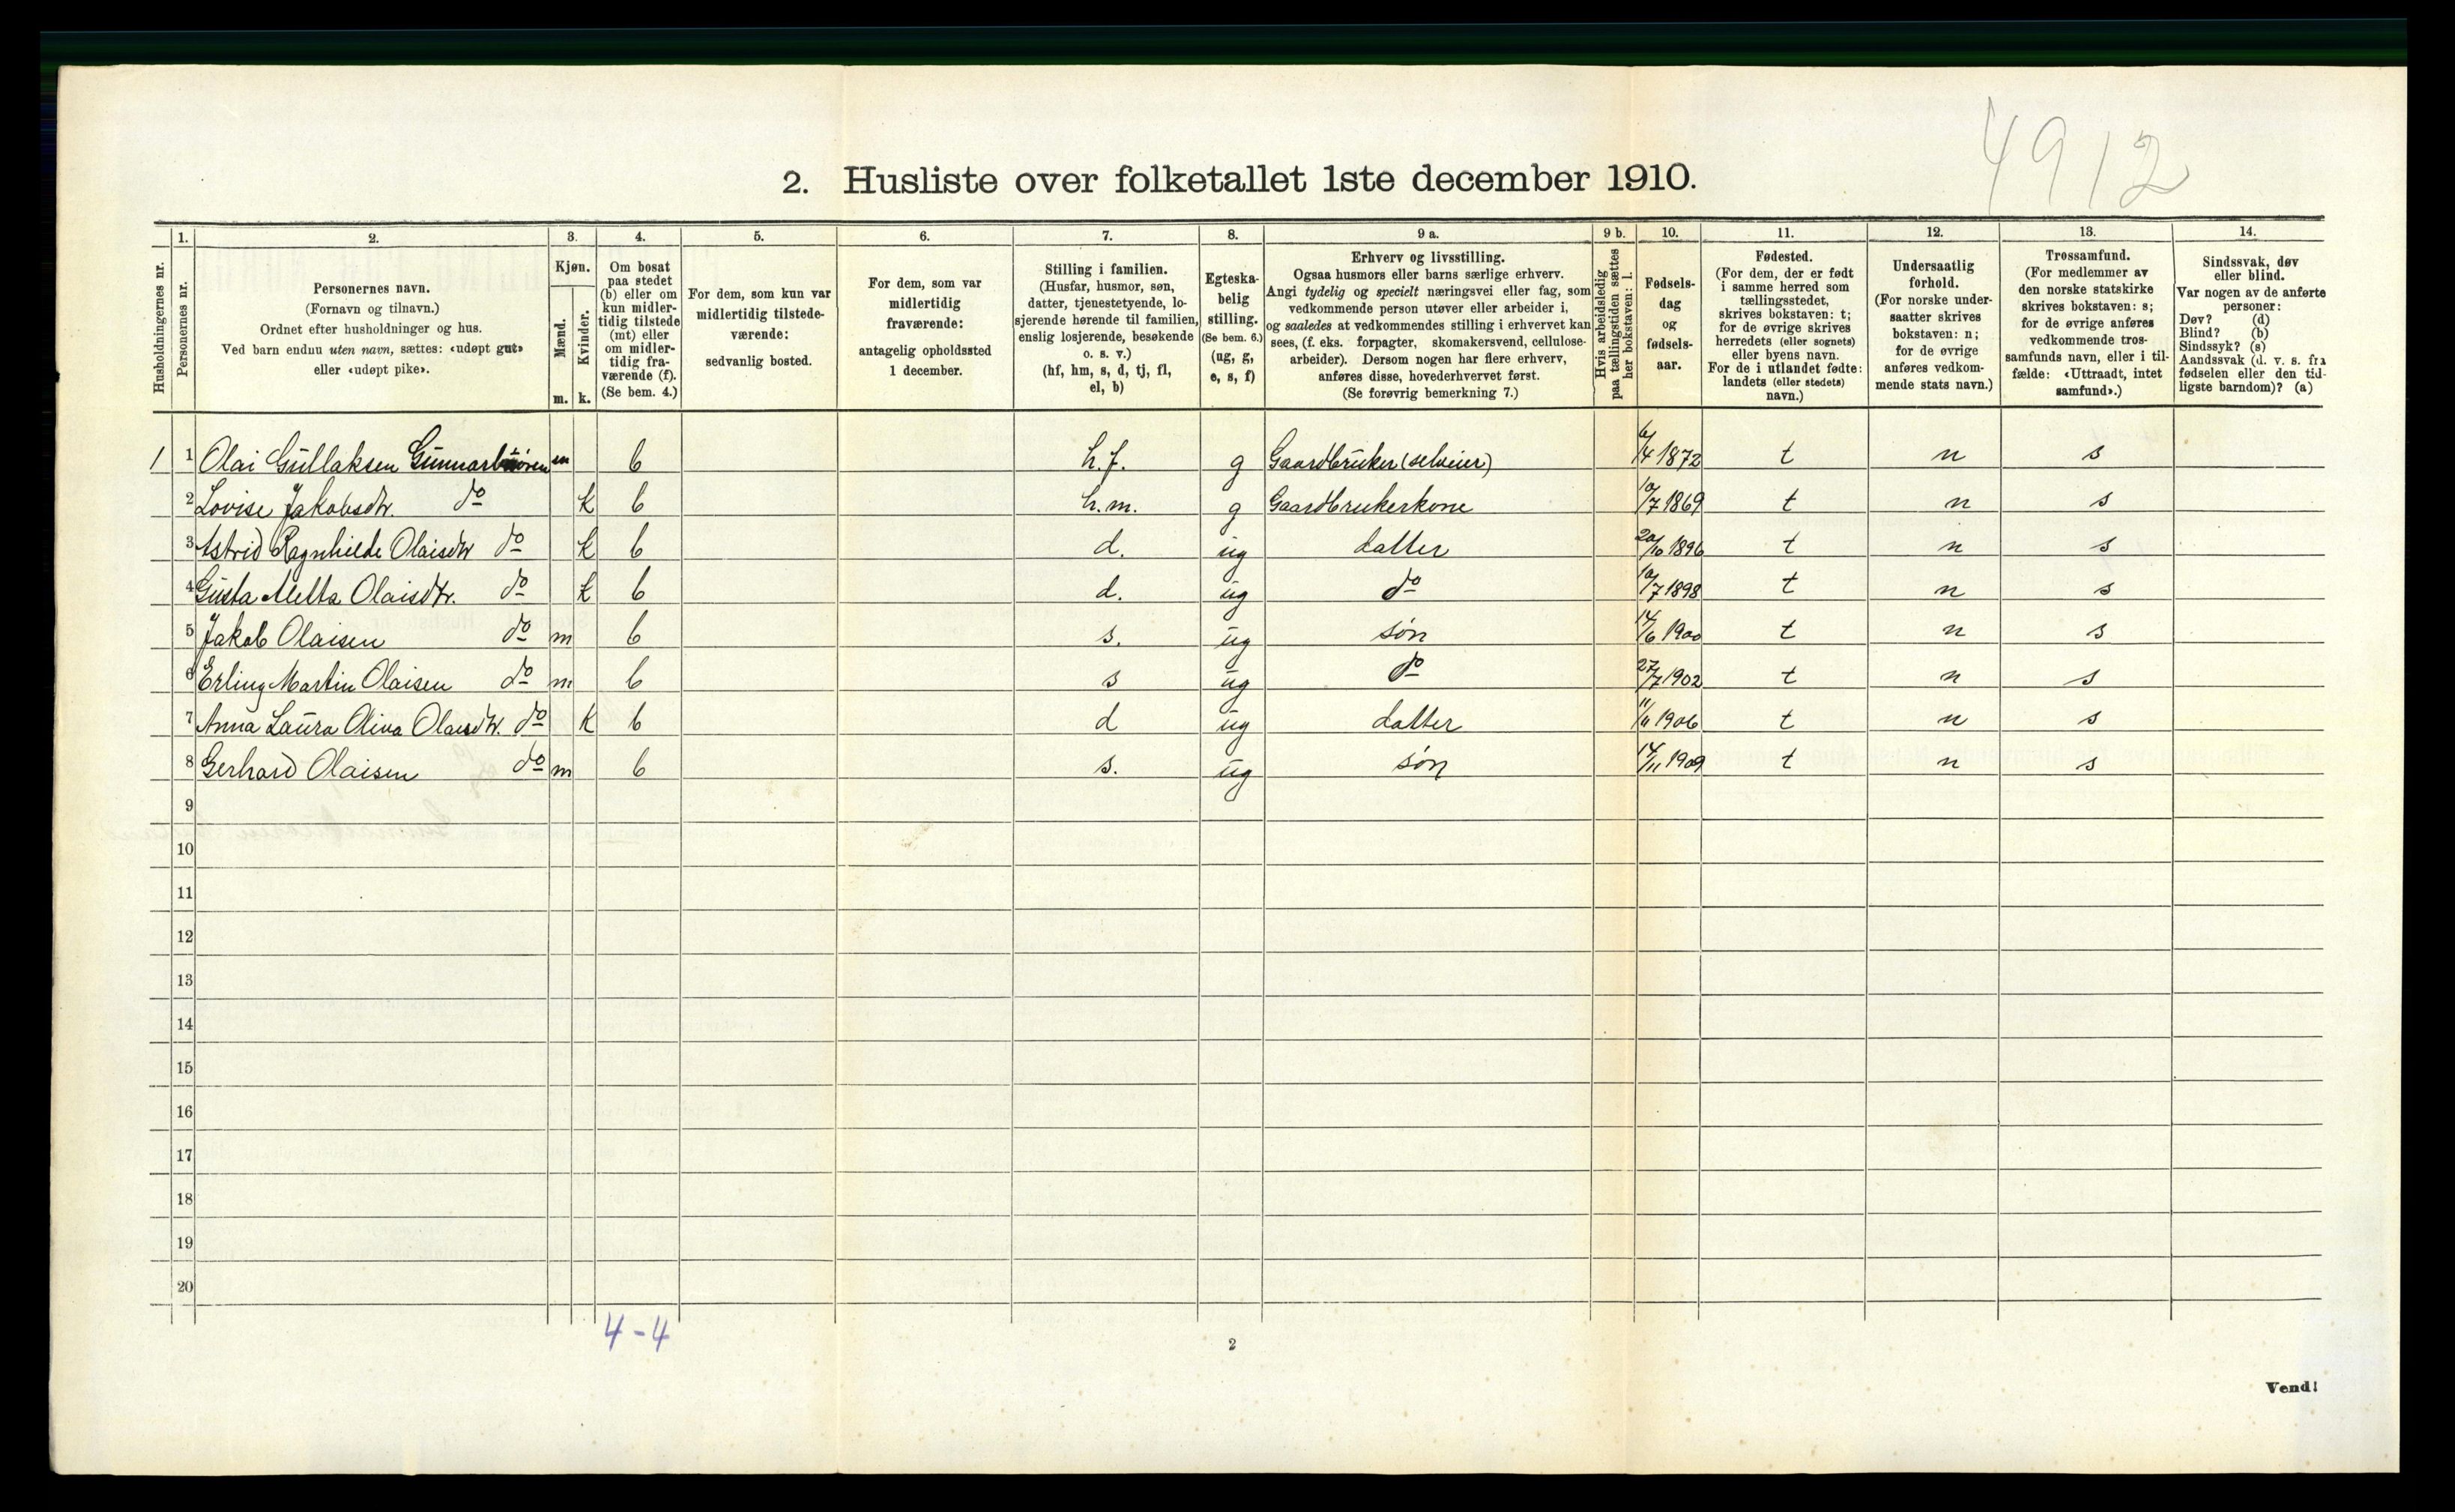 4912
2. Husliste over folketallet 1ste december 1910.
Husholdningernes nr.
1.
Personernes nr.
2.
Personernes navn.
(Fornavn og tilnavn.)
Ordnet efter husholdninger og hus.
Ved barn endnu uten navn, sættes: «udøpt gut»
eller «udøpt pike».
3.
Kjøn.
Mænd.
m.
Kvinder.
k.
4.
Om bosat
paa stedet
(b) eller om
kun midler-
tidig tilstede
(mt) eller
om midler-
tidig fra-
værende (f).
(Se bem. 4.)
5.
For dem, som kun var
midlertidig tilstede-
værende:
sedvanlig bosted.
6.
For dem, som var
midlertidig
fraværende:
antagelig opholdssted
1 december.
7.
Stilling i familien.
(Husfar, husmor, søn,
datter, tjenestetyende, lo-
sjerende hørende til familien,
enslig losjerende, besøkende
o. s. v.)
(hf, hm, s, d, tj, fl,
el, b)
8.
Egteska-
belig
stilling.
(Se bem. 6.)
(ug, g,
e, s, f)
9 a.
Erhverv og livsstilling.
Ogsaa husmors eller barns særlige erhverv.
Angi tydelig og specielt næringsvei eller fag, som
vedkommende person utøver eller arbeider i,
og saaledes at vedkommendes stilling i erhvervet kan
sees, (f. eks. forpagter, skomakersvend, cellulose-
arbeider). Dersom nogen har flere erhverv,
anføres disse, hovederhvervet først.
(Se forøvrig bemerkning 7.)
9 b.
Hvis arbeidsledig
paa tællingstiden sættes
her bokstaven: l.
10.
Fødsels-
dag
og
fødsels-
aar.
11.
Fødested.
(For dem, der er født
i samme herred som
tællingsstedet,
skrives bokstaven: t;
for de øvrige skrives
herredets (eller sognets)
eller byens navn.
For de i utlandet fødte:
landets (eller stedets)
navn.)
12.
Undersaatlig
forhold.
(For norske under-
saatter skrives
bokstaven: n;
for de øvrige
anføres vedkom-
mende stats navn.)
13.
Trossamfund.
(For medlemmer av
den norske statskirke
skrives bokstaven: s;
for de øvrige anføres
vedkommende tros-
samfunds navn, eller i til-
fælde: «Uttraadt, intet
samfund».)
14.
Sindssvak, døv
eller blind.
Var nogen av de anførte
personer:
Døv? (d)
Blind? (b)
Sindssyk? (s)
Aandssvak (d. v. s. fra
fødselen eller den tid-
ligste barndom)? (a)
1 1 Olai Gullaksen m b h.f. g Gaardbruker (selveier) 6/4 1872 t n s
2 Lovise Jakobsdtr. do k b h.m. g Gaardbrukerkone 10/7 1869 t n s
3 Astrid Ragnhilde Olaisdtr do k b d. ug datter 20/10 1896 t n s
4 Gusta Metta Olaisdtr. do k b d. ug do 10/7 1898 t n s
5 Jakob Olaisen do m b s. ug søn 14/6 1900 t n s
6 Erling Martin Olaisen do m b s ug do 27/7 1902 t n s
7 Anna Laura Oliva Olaisdtr. do k b d ug datter 11/11 1906 t n s
8 Gerhard Olaisen do m b s. ug søn 14/11 1909 t n s
9
10
11
12
13
14
15
16
17
18
19
20
4-4
2
Vend!